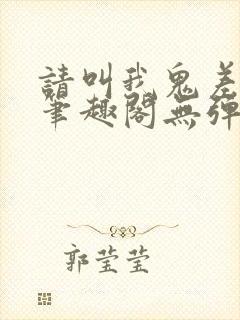 請叫我鬼差
筆趣閣無彈
郭莹莹